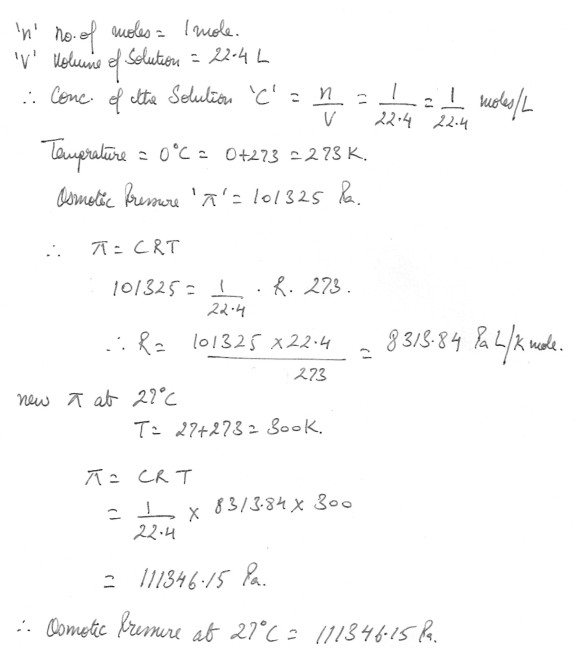 'n' No. of moles = 1 mole.
'V' Volume of Solution = 22.4 L
∴ Conc. of the Solution 'C' = n/V = 1/22.4 = 1/22.4 moles/L
Temprature = 0°C = 0+273 = 273 K.
Osmotic Pressure 'π' = 101325 Pa.
∴ π = CRT
101325 = 1/22.4 . R. 273.
∴ R = 101325 × 22.4/273 = 8313.84 Pa L/K mole.
new π at 27°C
T = 27+273 = 300K.
π = CRT
= 1/22.4 × 8313.84 × 300
= 111346.15 Pa.
∴ Osmotic Pressure at 27°C = 111346.15 Pa.